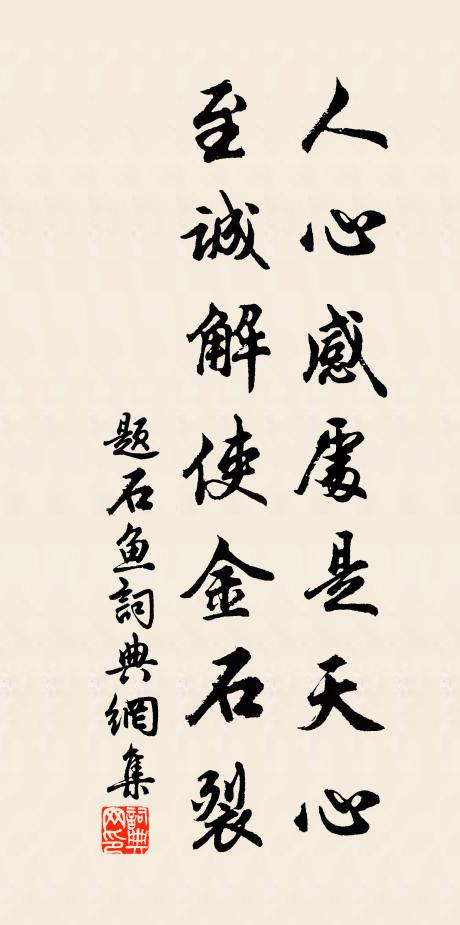 人心感處是天心
至誠解使金石裂
題石魚詞典網集
詞典
网印